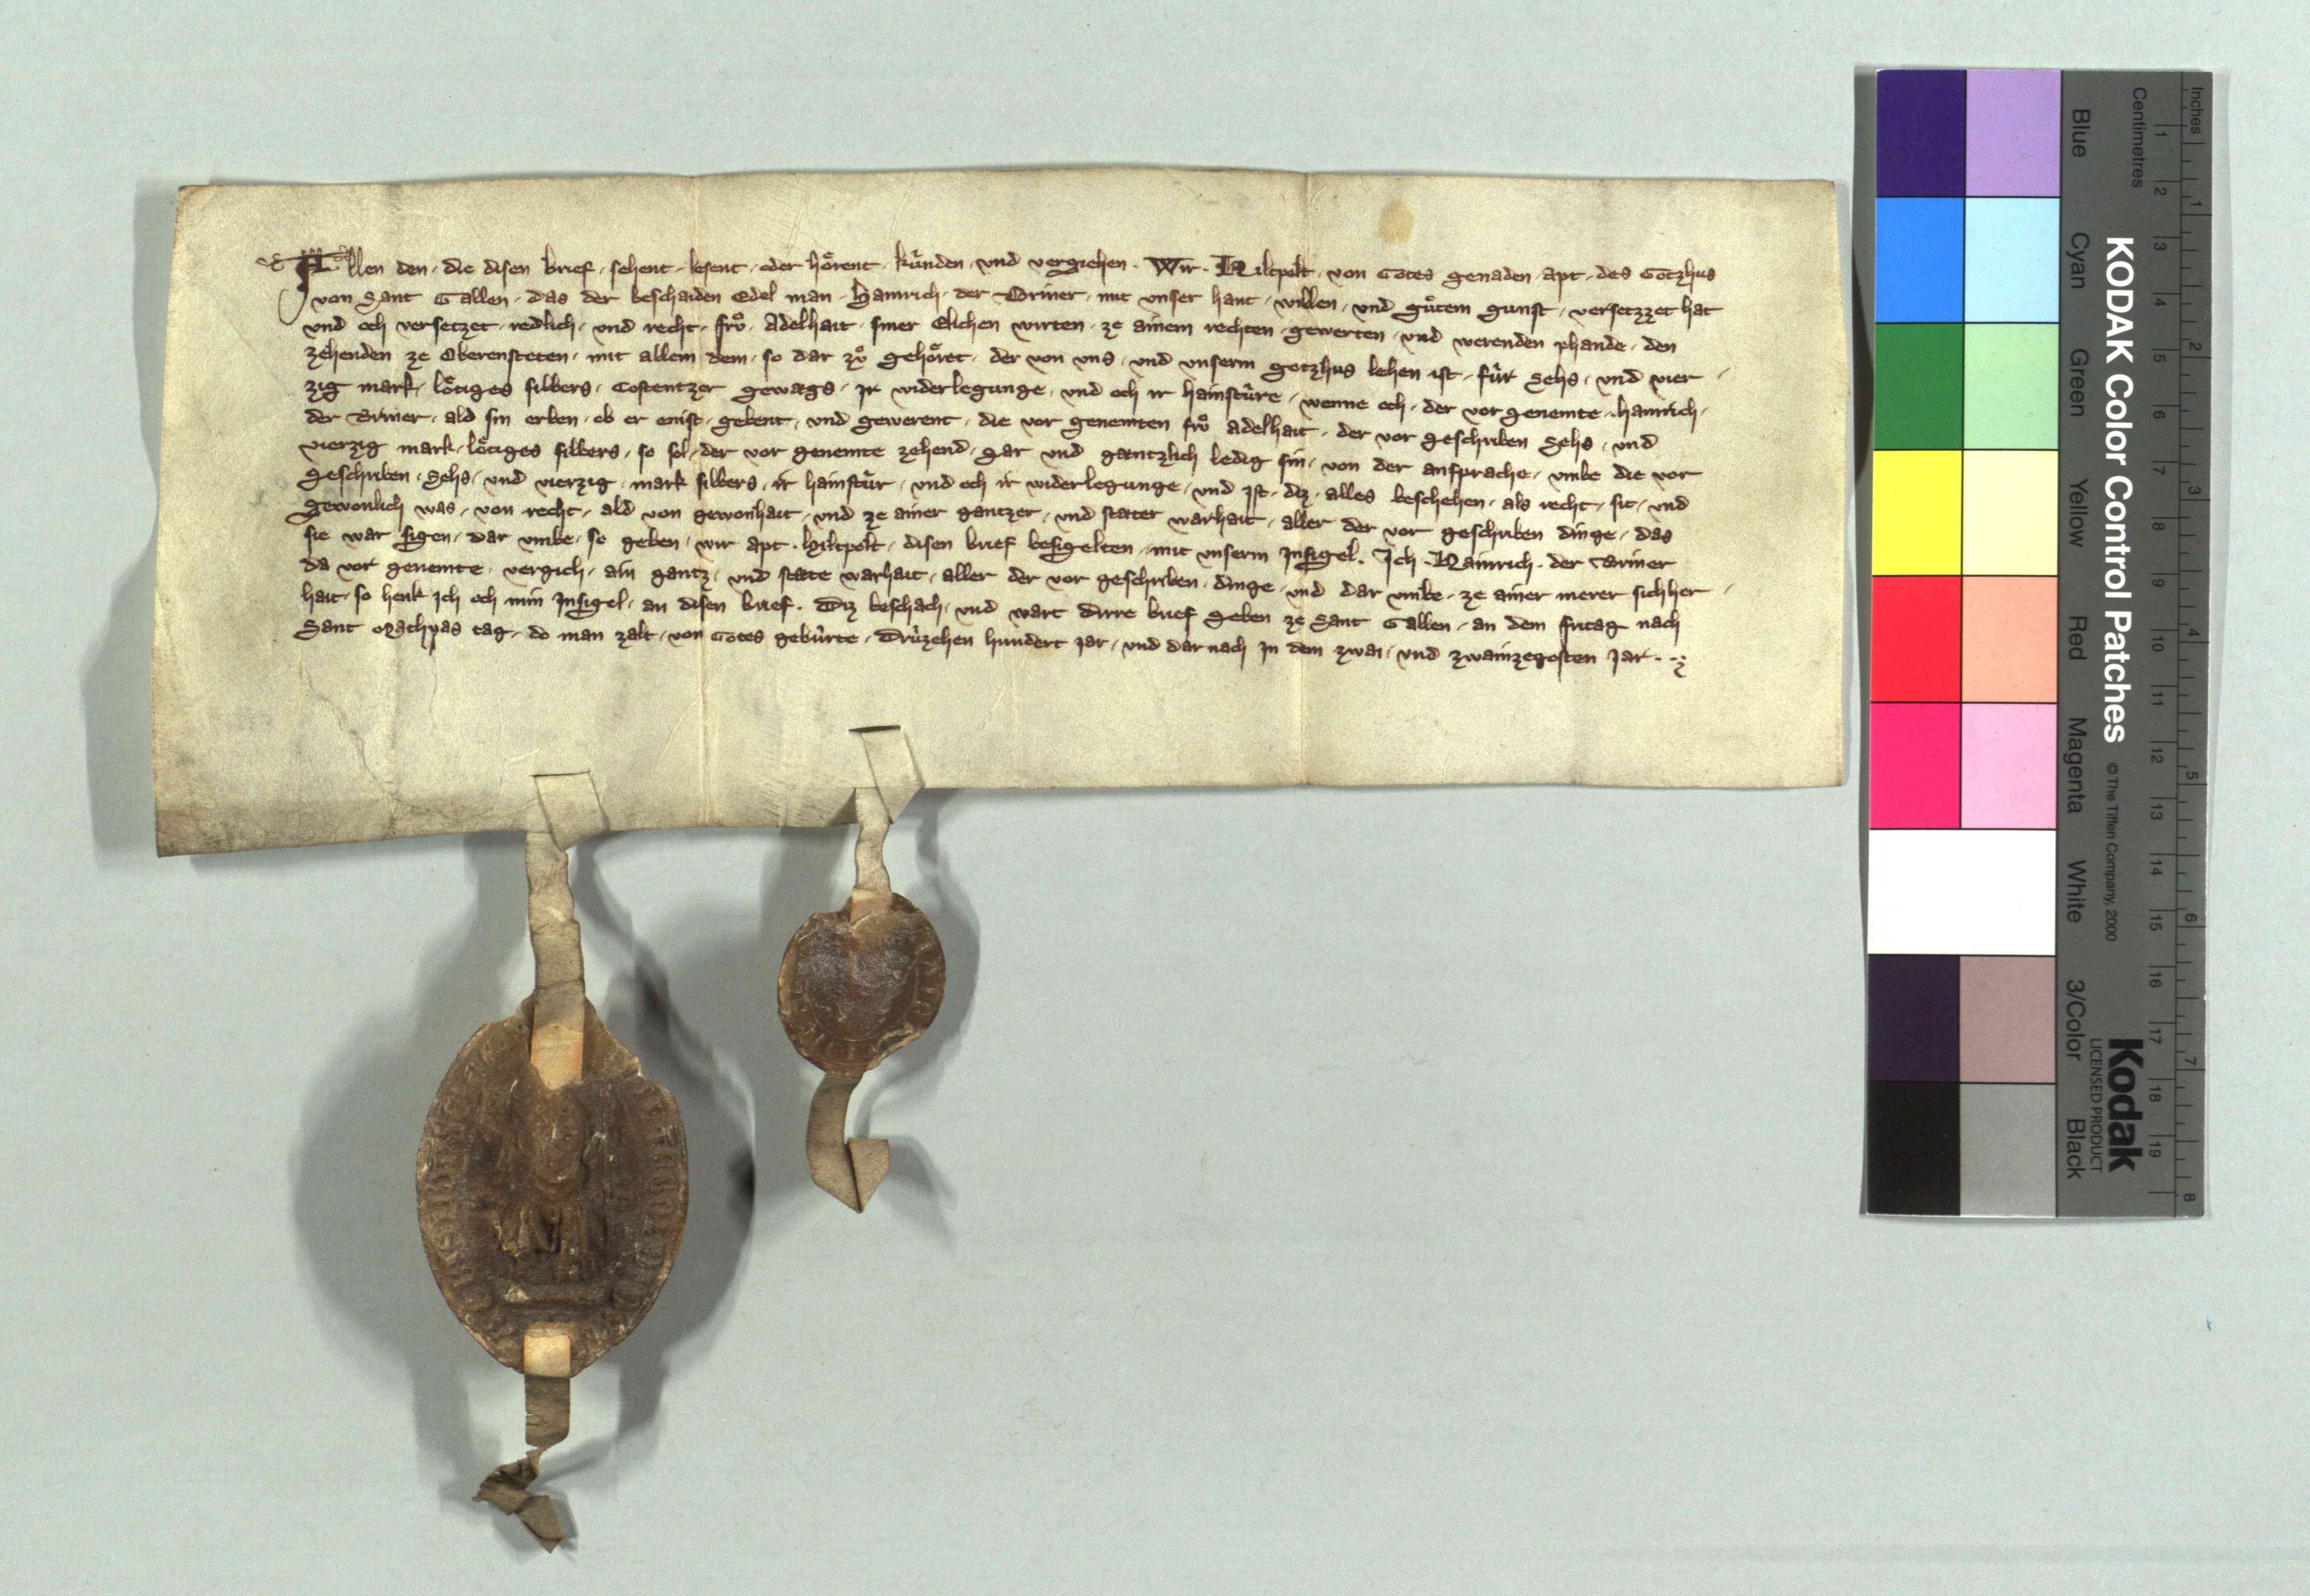 Allen den · die disen brief · sehent · lesent · oder hoͤrent · kúnden · und vergiehen · Wir · Hiltpolt · von Gotes genaden · apt · des Gotzhus
von Sant Gallen · das der beschaiden Edel man · Hainrich · der · mit unser hant · willen · und guͦtem gunst · versetzzet hat
und och versetzet · redlich · und recht · froͮ · Adelhait · siner Elichen wirten · ze ainem rechten · gewerten · und werenden phande · den
zehenden ze Oberensteten · mit allem dem · so dar zuͦ gehoͤret · der von uns · und unserm gotzhus lehen ist · fúr Sehs · und vier
zig mark · loͤtiges silbers · Costentzer gewaegs · ir widerlegunge · und och ir hainstúre · wenne och · der vorgenemte · hainrich ·
der · ald sin erben · ob er enist · gebent · und gewerent · die vor genemten froͮ adelhait · der vor geschriben Sehs · und
vierzig mark · loͤtiges silbers · so sol · der vor genemte zehend · gar und gantzlich ledig sin · von der ansprache · umbe die vor
geschriben · Sehs · und vierzig · mark silbers · ir hainstúr · und och ir widerlegunge · und ist · diz · alles beschehen · als recht · sit · und
gewonlich was · von recht · ald von gewonhait · und ze ainer gantzer · und staeter warhait · aller der vor geschriben dinge · das
sie war sigen · dar umbe · so geben · wir apt · hiltpolt · disen brief besigelten · mit unserm Insigel · Ich · Hainrich · der
da vor genemte · vergich · ain gantz · und staete warhait · aller der vor geschriben · dinge · und dar umbe · ze ainer merer sichher
hait · so henk ich och min Insigel · an disen brief · Diz beschach · und wart dirre brief geben ze Sant Gallen · an dem fritag nach
Sant Mathyas tag · do man zalt · von Gotes gebúrte · Drúzehen hundert jar · und dar nach in dem zwai · und zwainzegosten Jar ·
KODAK Color Control Patches
© The Tiffen Company, 2000
Kodak
LICENSED PRODUCT
Blue Cyan Green Yellow Red Magenta White 3/Color Black
Inches 1 2 3 4 5 6 7 8
Centimetres 1 2 3 4 5 6 7 8 9 10 11 12 13 14 15 16 17 18 19